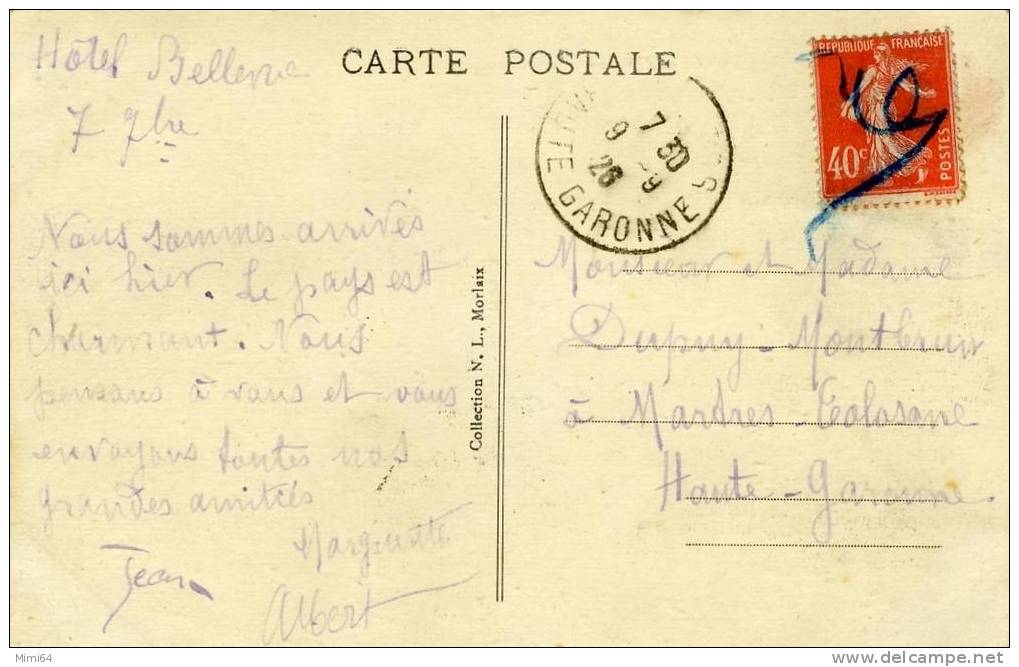 Hôtel Bellevue
7 7bre
Nous sommes arrivés
ici hier. Le pays est
charmant. Nous
pensons à vous et vous
envoyons toutes nos
grandes amitiés
Marguerite
Jean
Albert
CARTE POSTALE
Collection N. L., Morlaix
7 30
9 -9
26
HAUTE GARONNE
RÉPUBLIQUE FRANÇAISE
40c
POSTES
Monsieur et Madame
Dupuy-Montbrun
à Martres-Tolosane
Haute-Garonne
Mimi64
delcampe.net